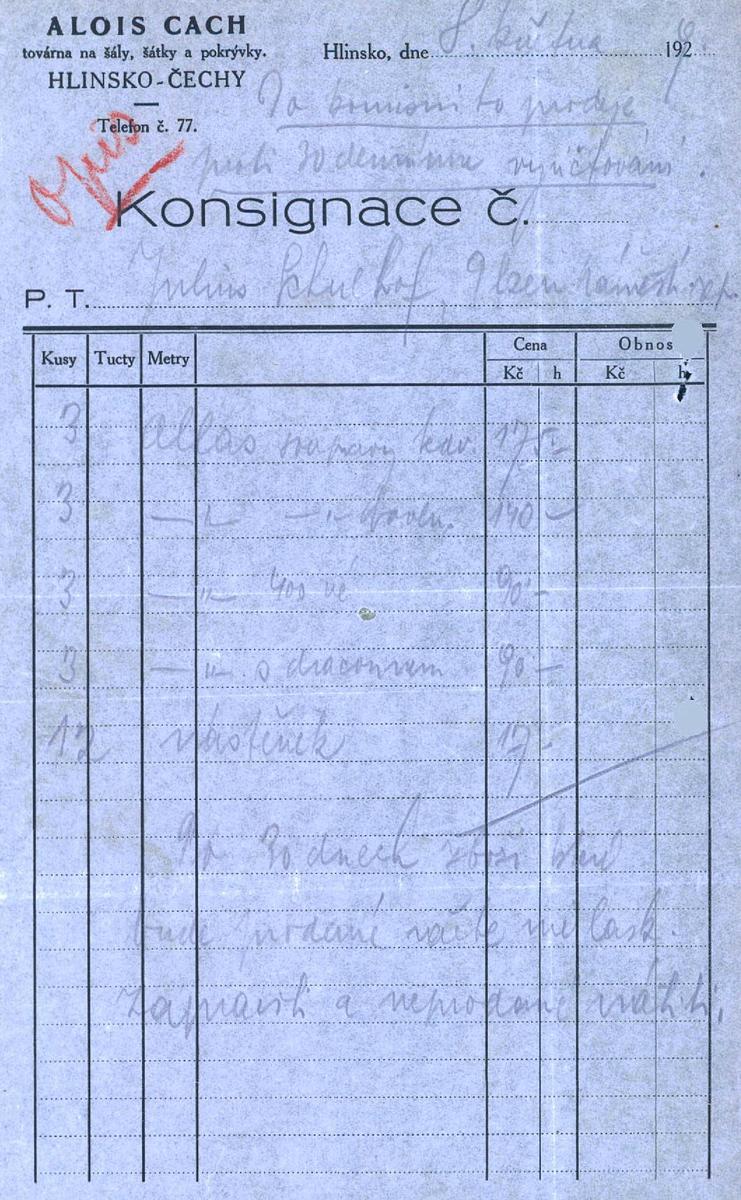 ALOIS CACH
továrna na šály, šátky a pokrývky.
HLINSKO-ČECHY
Telefon č. 77.
Hlinsko, dne 8. května 1929.
Do komisního prodeje
proti 30 dennímu vyúčtování.
Opis
Konsignace č.
P. T. Julius Schulhof, Plzeň náměstí
Kusy Tucty Metry Cena Obnos
Kč h Kč h
3 Atlas soupravy 175.-
3 -"- -"- 140 -
3 -"- 400 vé 90 -
3 -"- s 90 -
12 vlasteňek 17 -
Po 30 dnech zboží
bude prodané račte mi lask.
zapraviti a neprodané vrátiti.